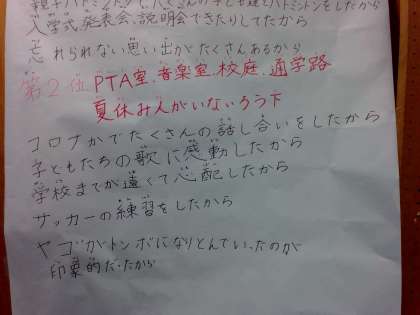 親子バドミントンでたくさんの子ども達とバドミントンをしたから
入学式、発表会、説明会できたりしてたから
忘れられない思い出がたくさんあるから
第2位 PTA室、音楽室、校庭、通学路
夏休み人がいないろう下
コロナかでたくさんの話し合いをしたから
子どもたちの歌に感動したから
学校までが遠くて心配したから
サッカーの練習をしたから
ヤゴがトンボになりとんでいったのが
印象的だったから